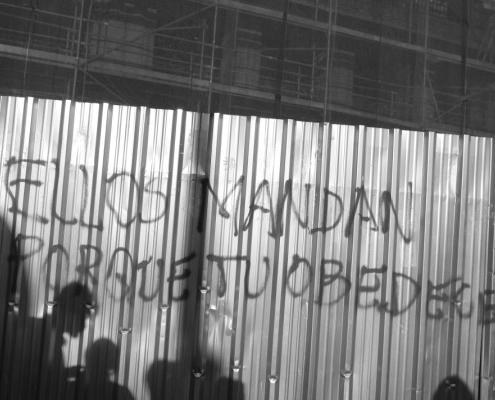 ELLOS MANDAN
PORQUE TU OBEDECE